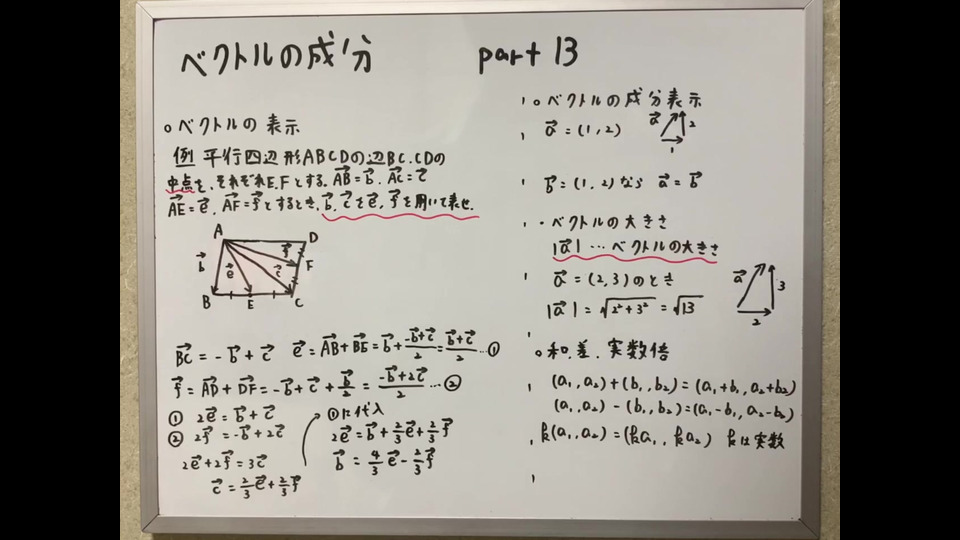 ベクトルの成分 part 13
○ベクトルの表示
例 平行四辺形ABCDの辺BC.CDの
中点を、それぞれE.Fとする。AB→=b→. AC→=c→
AE→=e→. AF→=f→とするとき、b→. c→をe→. f→を用いて表せ.
A
D
b→
e→
c→
f→
F
B
E
C
BC→ = -b→ + c→ e→ = AB→ + BE→ = b→ + (-b→+c→)/2 = (b→+c→)/2 …①
f→ = AD→ + DF→ = -b→ + c→ + b→/2 = (-b→+2c→)/2 …②
① 2e→ = b→ + c→
② 2f→ = -b→ + 2c→
2e→ + 2f→ = 3c→
c→ = 2/3 e→ + 2/3 f→
①に代入
2e→ = b→ + 2/3 e→ + 2/3 f→
b→ = 4/3 e→ - 2/3 f→
○ベクトルの成分表示
a→ = (1, 2)
a→
2
1
b→ = (1, 2) なら a→ = b→
・ベクトルの大きさ
|a→| … ベクトルの大きさ
a→ = (2, 3) のとき
|a→| = √(2²+3²) = √13
a→
3
2
○和. 差. 実数倍
(a₁, a₂) + (b₁, b₂) = (a₁+b₁, a₂+b₂)
(a₁, a₂) - (b₁, b₂) = (a₁-b₁, a₂-b₂)
k(a₁, a₂) = (ka₁, ka₂) kは実数